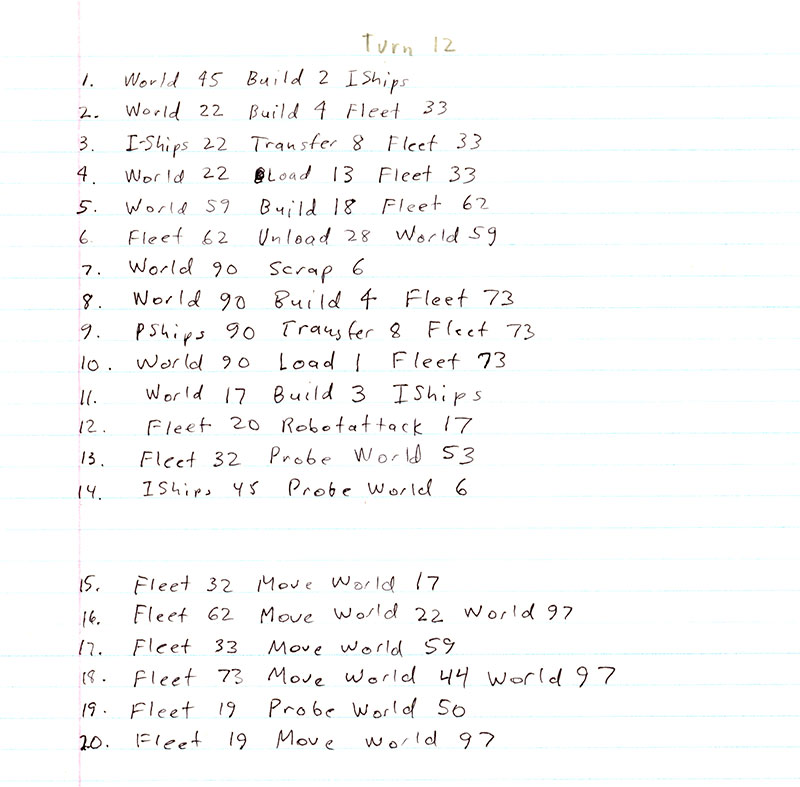 Turn 12
1. World 45 Build 2 IShips
2. World 22 Build 4 Fleet 33
3. I-Ships 22 Transfer 8 Fleet 33
4. World 22 Load 13 Fleet 33
5. World 59 Build 18 Fleet 62
6. Fleet 62 Unload 28 World 59
7. World 90 Scrap 6
8. World 90 Build 4 Fleet 73
9. PShips 90 Transfer 8 Fleet 73
10. World 90 Load 1 Fleet 73
11. World 17 Build 3 IShips
12. Fleet 20 Robotattack 17
13. Fleet 32 Probe World 53
14. IShips 45 Probe World 6
15. Fleet 32 Move World 17
16. Fleet 62 Move World 22 World 97
17. Fleet 33 Move World 59
18. Fleet 73 Move World 44 World 97
19. Fleet 19 Probe World 50
20. Fleet 19 Move World 97